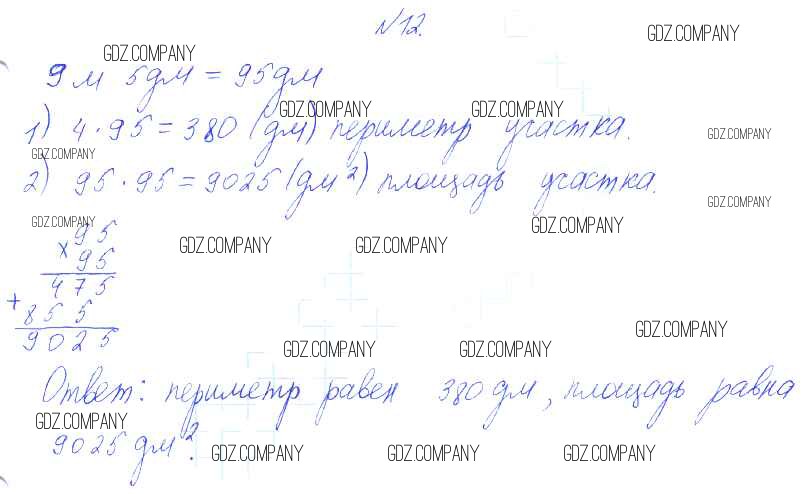 №12.
GDZ.COMPANY
GDZ.COMPANY
9м 5дм = 95дм
GDZ.COMPANY GDZ.COMPANY
1) 4·95=380 (дм) периметр участка.
GDZ.COMPANY
GDZ.COMPANY
2) 95·95=9025 (дм²) площадь участка.
GDZ.COMPANY
GDZ.COMPANY
95
GDZ.COMPANY
GDZ.COMPANY GDZ.COMPANY
× 95
475
+ 855
GDZ.COMPANY
9025
GDZ.COMPANY GDZ.COMPANY
Ответ: периметр равен 380 дм, площадь равна
GDZ.COMPANY
9025 дм².
GDZ.COMPANY GDZ.COMPANY GDZ.COMPANY